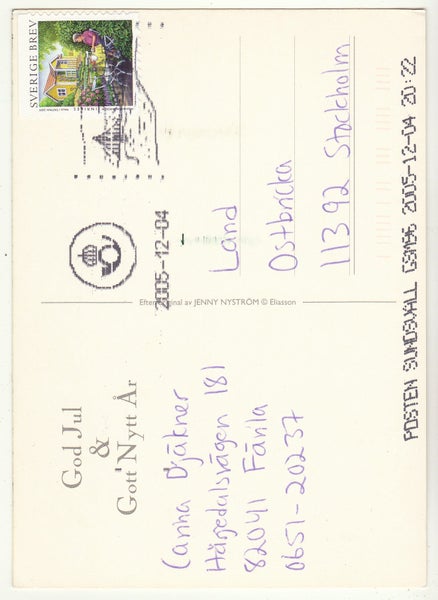 God Jul
&
Gott Nytt År
Djäkner
Härjedalsvägen 181
82041 Färila
0651-20237
Efter original av JENNY NYSTRÖM © Eliasson
SVERIGE BREV
2005-12-04
Land
Ostbricka
11392 Stockholm
POSTEN SUNDSVALL GSM96 2005-12-04 20:22